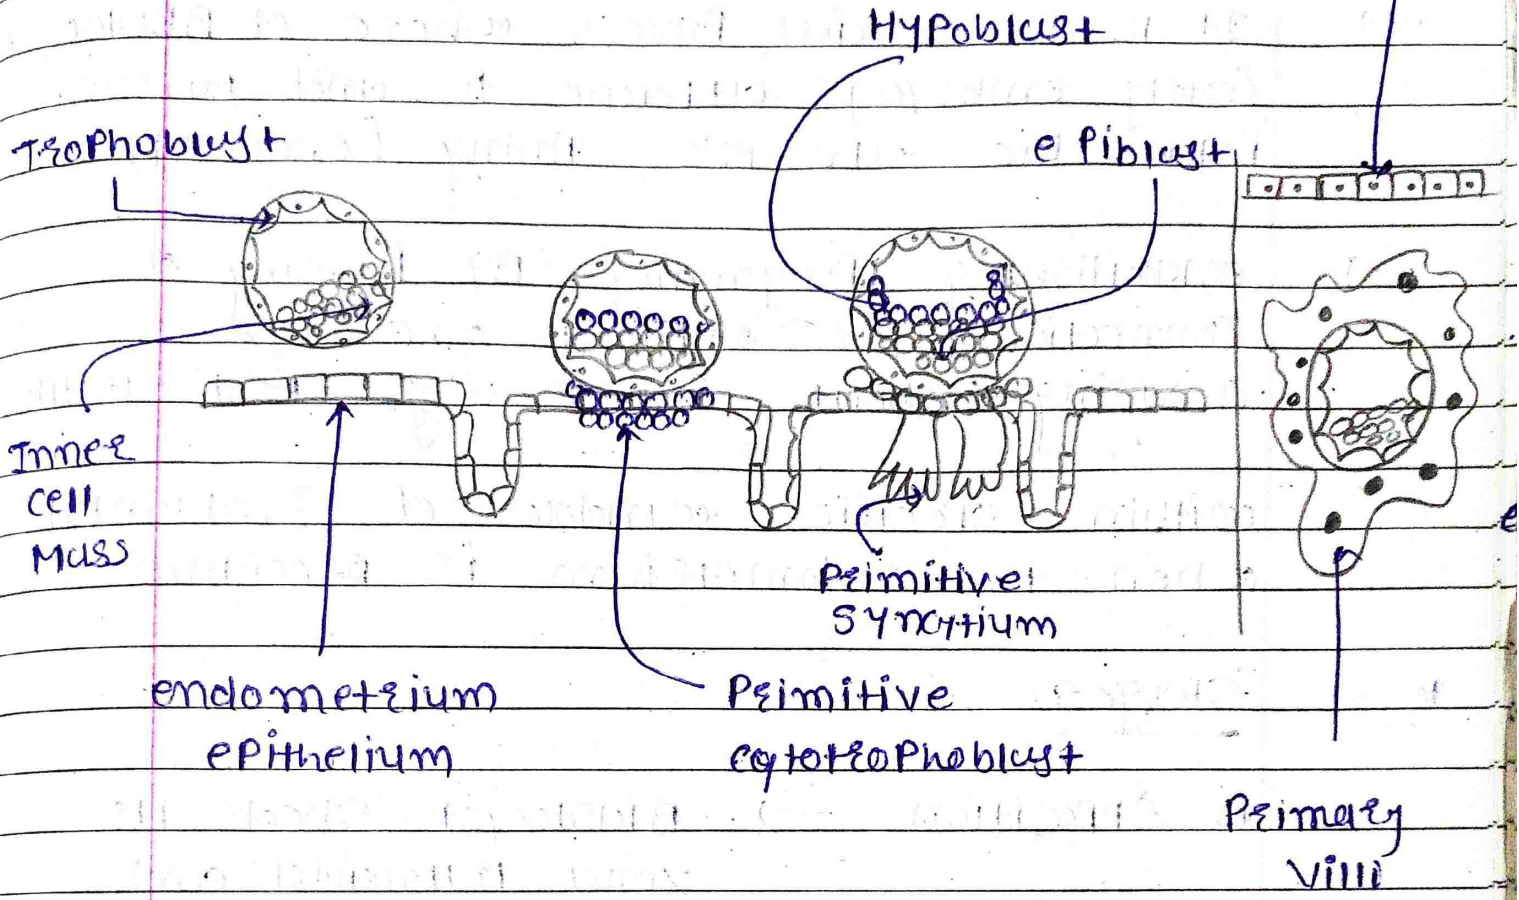 Hypoblast
Trophoblast
epiblast
Inner
cell
Mass
Primitive
Syncytium
endometrium
epithelium
Primitive
cytotrophoblast
Primary
Villi